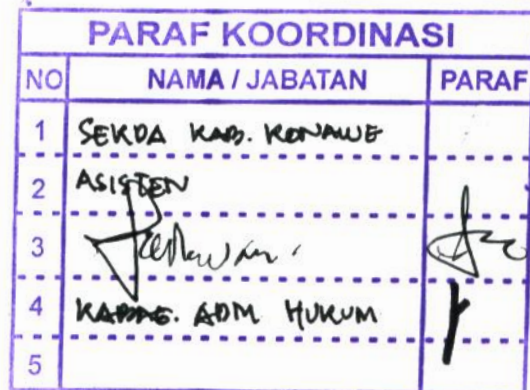 PARAF KOORDINASI
NO NAMA / JABATAN PARAF
1 SEKDA KAB. KONAWE
2 ASISTEN
3
4 KABAG. ADM HUKUM
5